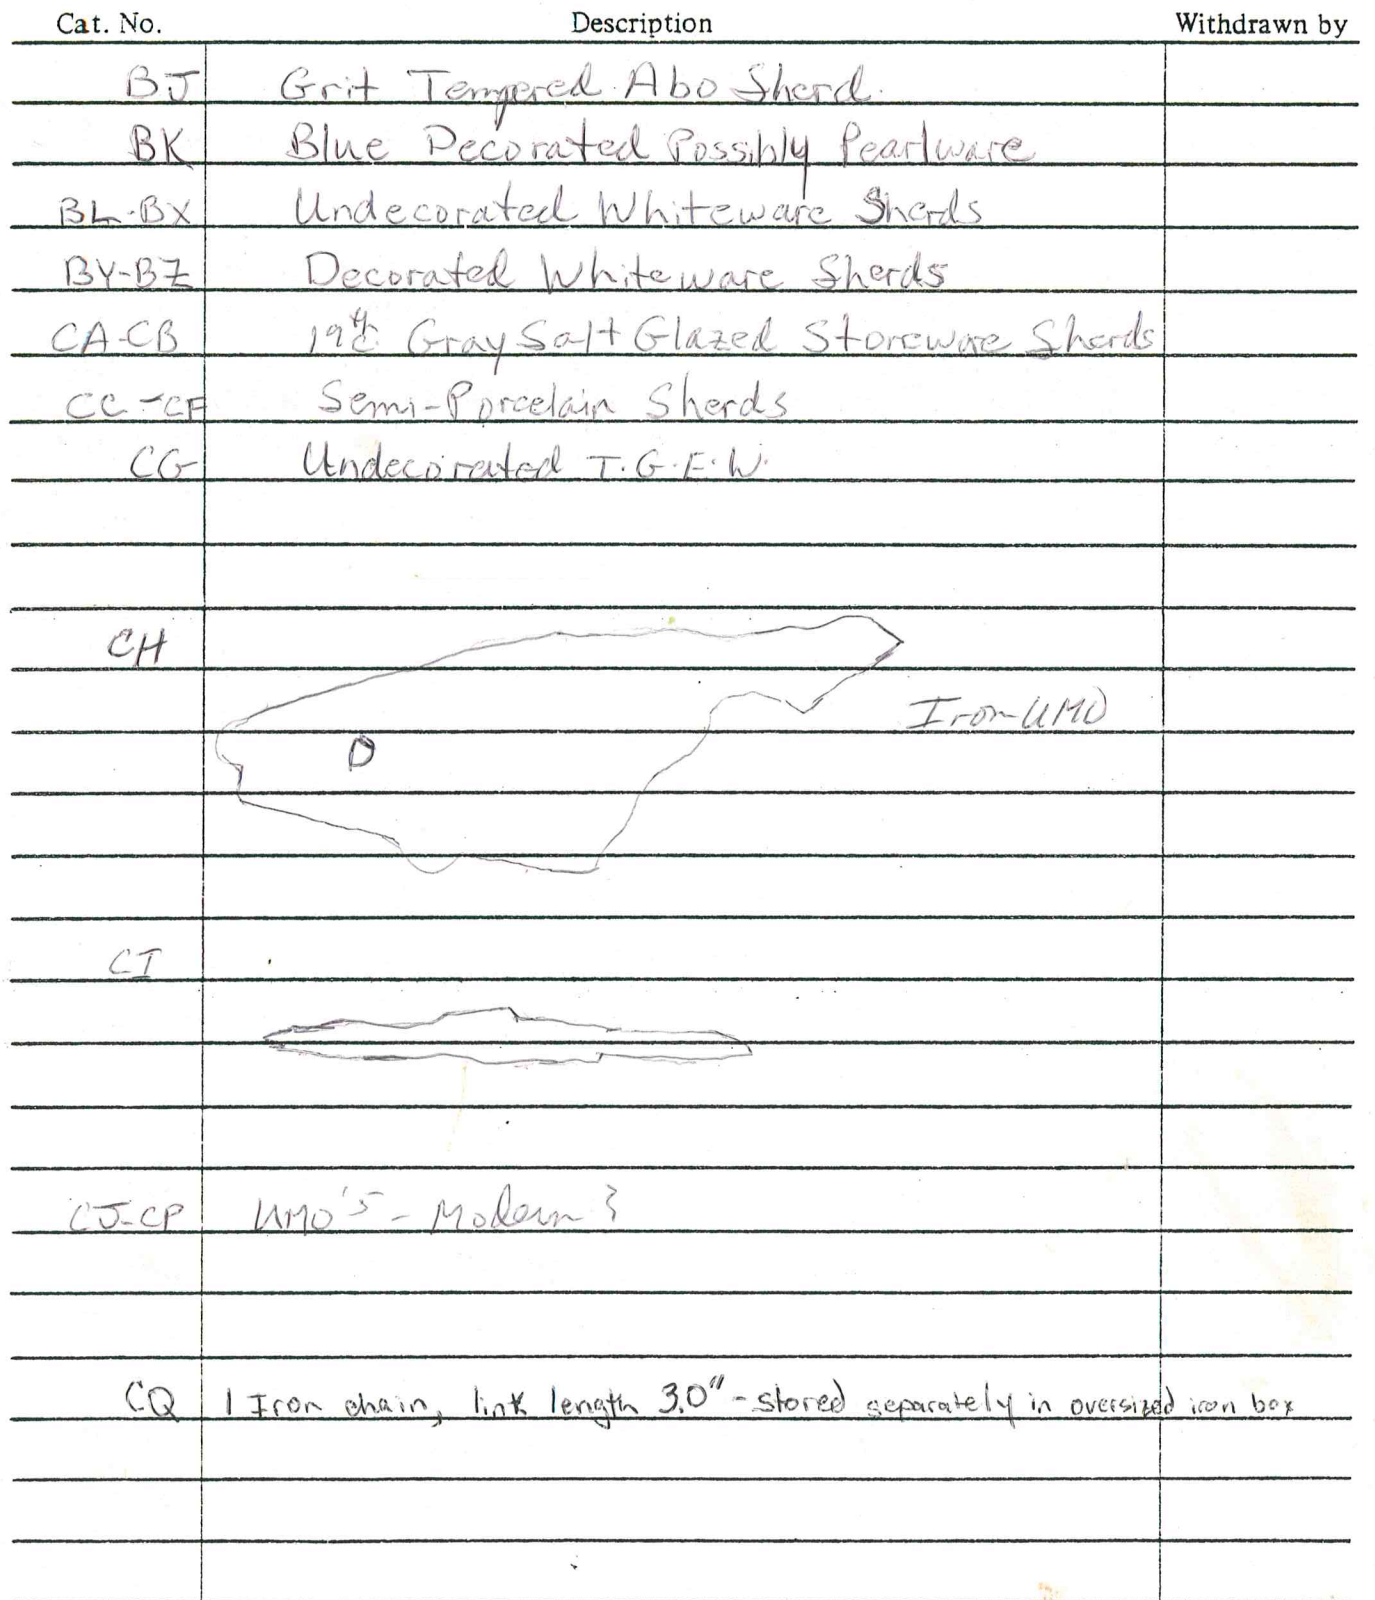 Cat. No. Description Withdrawn by
BJ Grit Tempered Abo Sherd.
BK Blue Decorated Possibly Pearlware
BL-BX Undecorated Whiteware Sherds
BY-BZ Decorated Whiteware Sherds
CA-CB 19th C. Gray Salt Glazed Stoneware Sherds
CC-CF Semi-Porcelain Sherds
CG Undecorated T.G.E.W.
CH
Iron-UMO
CI
CJ-CP UMO's - Modern?
CQ 1 Iron chain, link length 3.0" - stored separately in oversized iron box